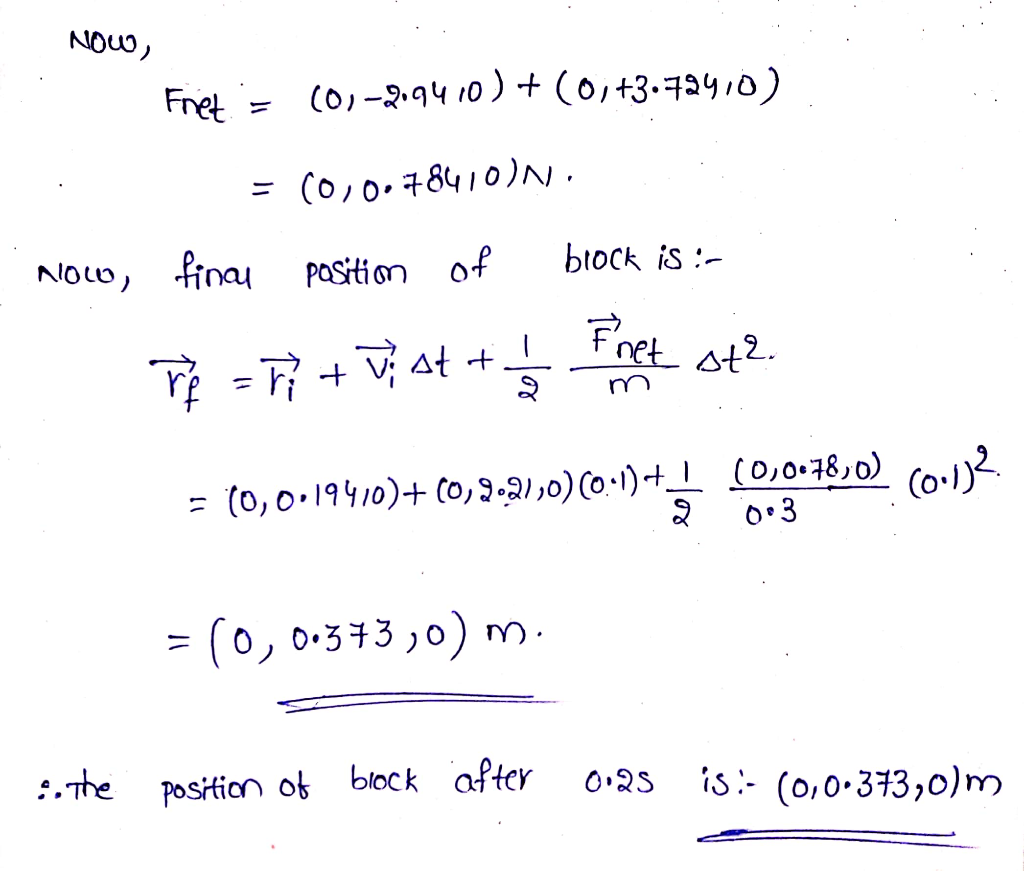 Now,
Fnet = (0,-2.94,0) + (0,+3.724,0)
= (0,0.784,0)N.
Now, final position of block is :-
r⃗f = r⃗i + v⃗i Δt + 1/2 F⃗net/m Δt².
= (0,0.194,0)+(0,2.21,0)(0.1)+ 1/2 (0,0.78,0)/0.3 (0.1)².
= (0, 0.373,0) m.
∴ The position of block after 0.2s is :- (0,0.373,0)m